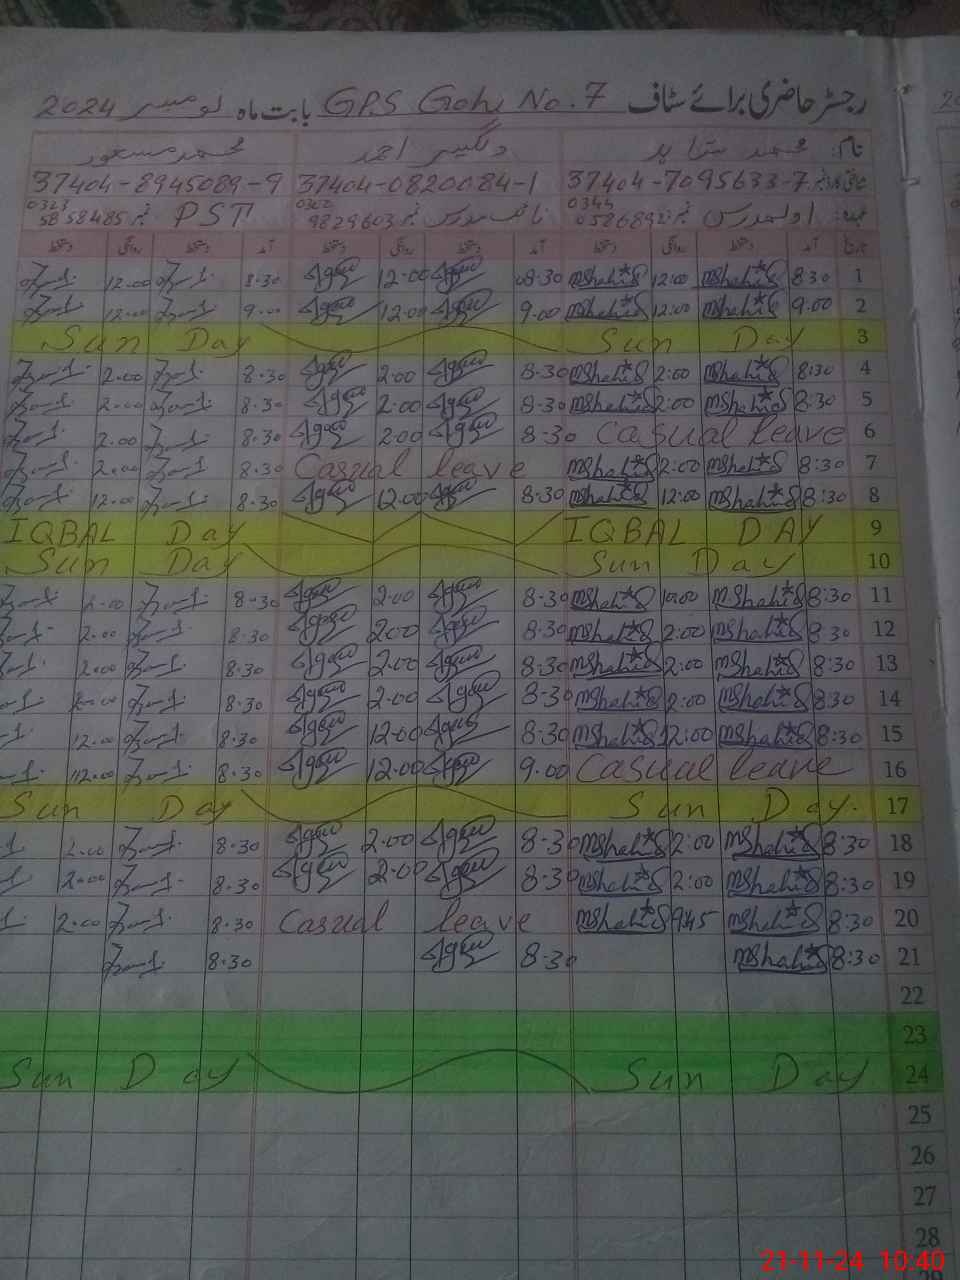 رجسٹر حاضری برائے سٹاف GPS Goh No. 7 بابت ماہ نومبر 2024
نام: محمد شاہد دستگیر احمد محمد مسعود
37404-7095633-7 37404-0820084-1 37404-8945089-9
عہدہ: اول مدرس نمبر 0344 نائب مدرس نمبر 9829603 PST نمبر 5858485 0323
تاریخ آمد دستخط روانگی دستخط آمد دستخط روانگی دستخط آمد دستخط روانگی دستخط
1 8:30 mShahid 12:00 mShahid 08-30 12.00 8.30 12.00
2 9.00 mShahid 12:00 mShahid 9.00 12.00 9.00 12.00
3 Sun Day Sun Day
4 8:30 mShahid 2:00 mShahid 8.30 2.00 8.30 2.00
5 8:30 mShahid 2:00 mShahid 8.30 2.00 8.30 2.00
6 Casual leave 8.30 2.00 8.30 2.00
7 8:30 mShahid 2:00 mShahid Casual leave 8.30 2.00
8 8:30 mShahid 12:00 mShahid 8.30 12.00 8.30 12.00
9 IQBAL DAY IQBAL Day
10 Sun Day Sun Day
11 8:30 mShahid mShahid 8.30 2.00 8.30 2.00
12 8:30 mShahid 2:00 mShahid 8.30 2.00 8.30 2.00
13 8:30 mShahid 2:00 mShahid 8.30 2.00 8.30 2.00
14 8:30 mShahid 2:00 mShahid 8.30 2.00 8.30 2.00
15 8:30 mShahid 12:00 mShahid 8.30 12.00 8.30 12.00
16 Casual leave 9.00 12.00 8.30 12.00
17 Sun Day. Sun Day
18 8:30 mShahid 2:00 mShahid 8.30 2.00 8.30 2.00
19 8:30 mShahid 2:00 mShahid 8.30 2.00 8.30 2.00
20 8:30 mShahid 9:45 mShahid Casual leave 8.30 2.00
21 8:30 mShahid 8.30 8.30
22
23
24 Sun Day Sun Day
25
26
27
28
21-11-24 10:40